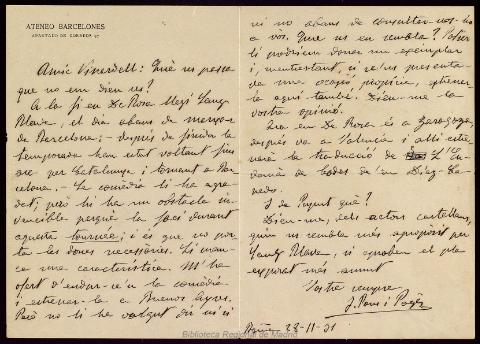 ATENEO BARCELONES
APARTADO DE CORREOS 27
Amic Viverdell: Què us passa
que no em dieu res?
A la fi en De Rosa llegí Sang
blava, el dia abans de marxar
de Barcelona; - després de finida la
temporada han estat voltant
per Catalunya i tornant a Bar
celona. - La comèdia li ha agra
dat; però hi ha un obstacle in
vencible perquè la faci durant
aquesta tournée; i és que no por
ta les dones necessàries. Li man
ca una característica. M'ha
ofert d'endur-se'n la comèdia
i estrenar-la a Buenos Ayres.
Però no li he volgut dir ni sí
ni no abans de consultar-vos-ho
a vós. Què us en sembla? Potser
li podríem donar un exemplar
i, mentrestant, si se'ns presenta
da una ocasió propícia, estrenar-
la aquí també. Dieu-me la
vostra opinió.
Ara en De Rosa és a Zaragoza,
després va a València i allí estre
narà la traducció de L'
de de'n Diaz-Ca
nedo.
I de Puput què?
Dieu-me, dels actors castellans,
quin us sembla més apropòsit per
Sang Blava, si aproben el pla
exposat més amunt
Vostre sempre,
J. Pous i Pagès
22-11-21
Biblioteca Regional de Madrid